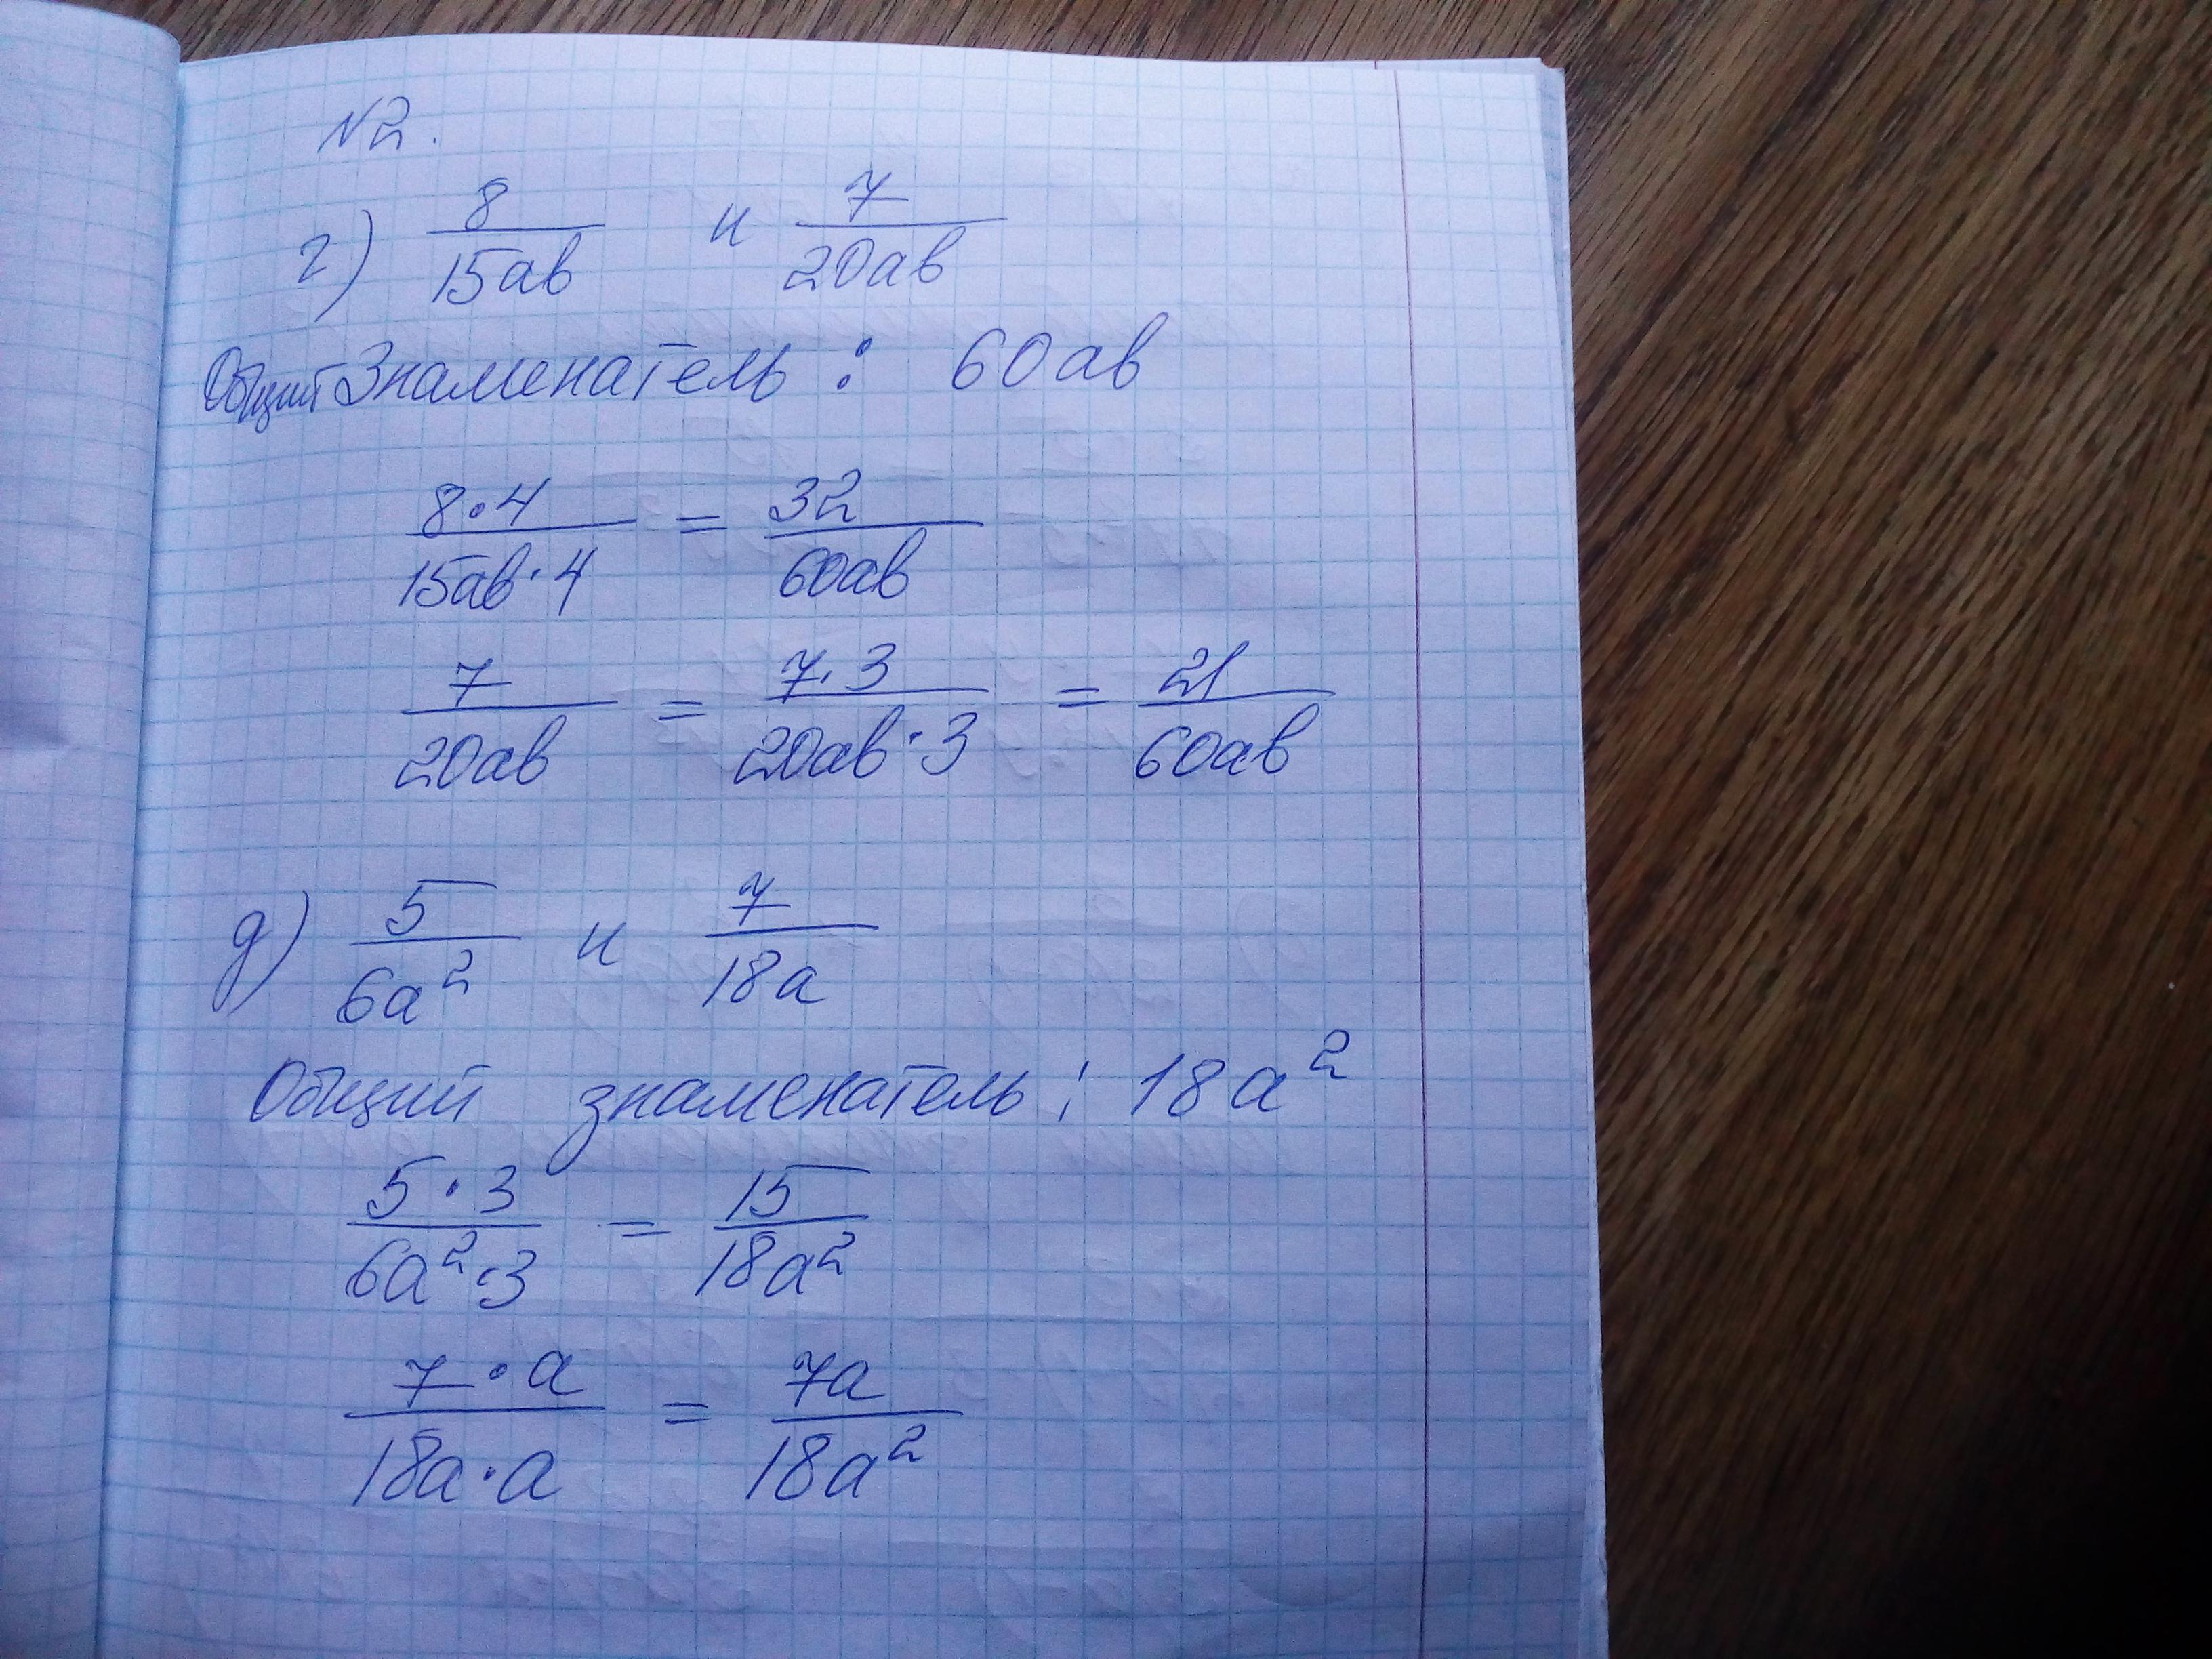 N2.
г) 8/15ав и 7/20ав
Общий Знаменатель: 60ав
8·4/15ав·4 = 32/60ав
7/20ав = 7·3/20ав·3 = 21/60ав
д) 5/6а² и 7/18а
Общий знаменатель: 18а²
5·3/6а²·3 = 15/18а²
7·а/18а·а = 7а/18а²